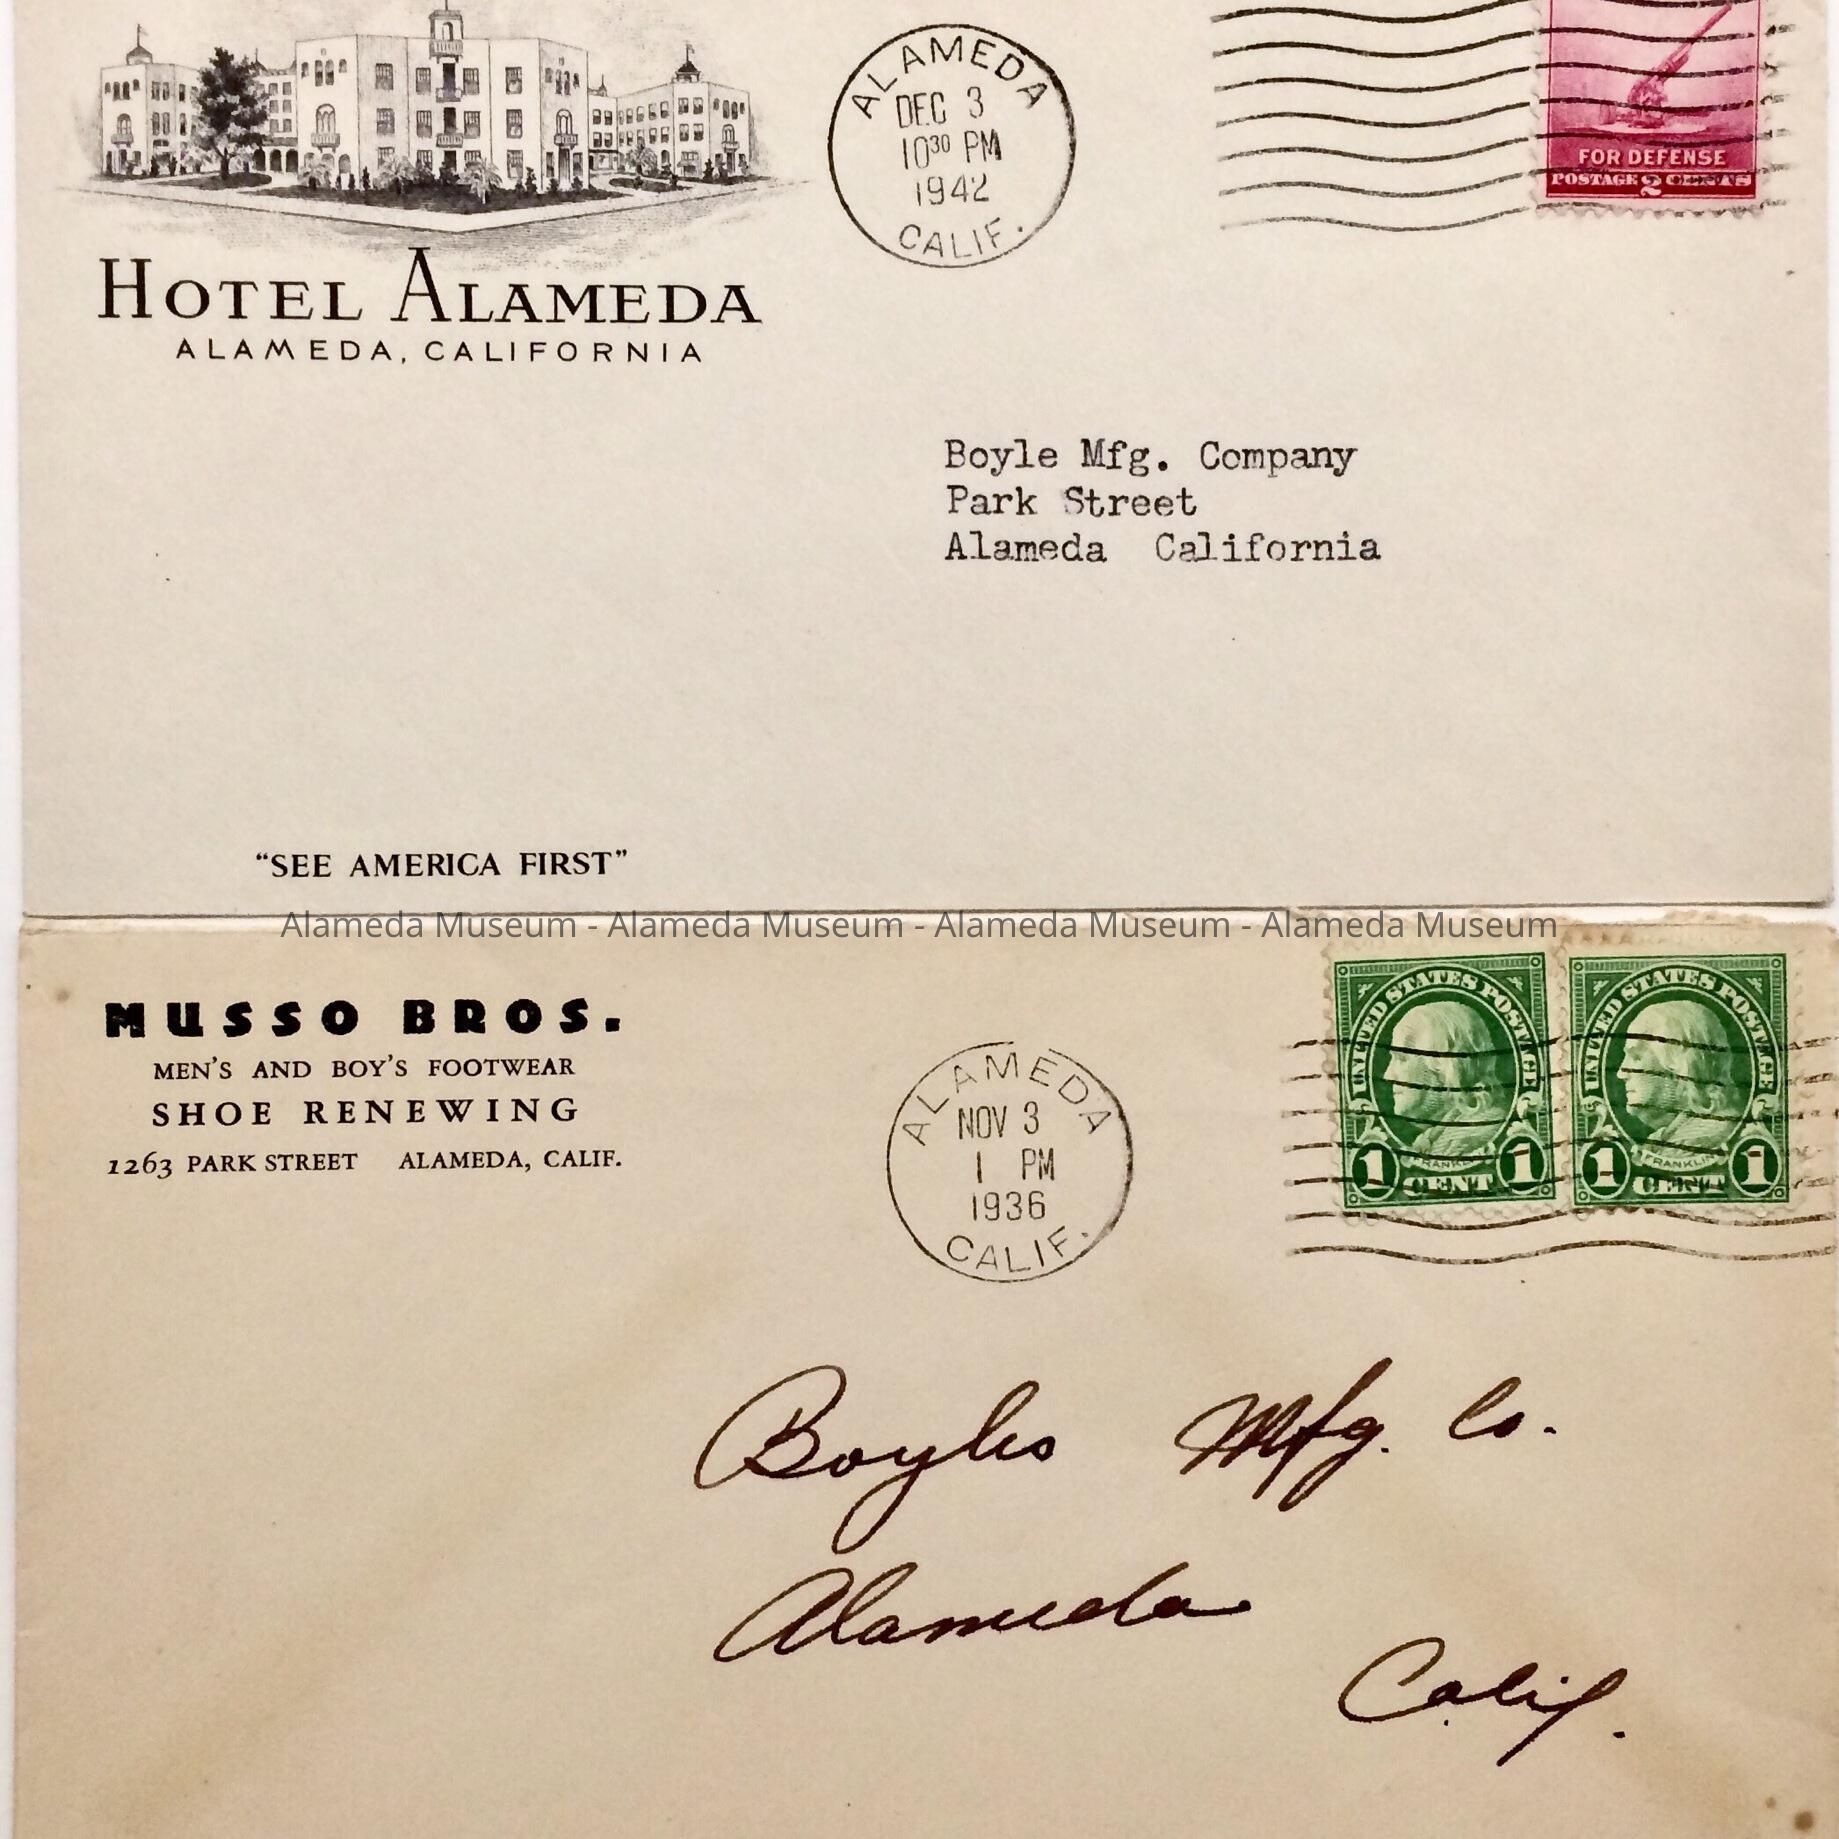 ALAMEDA
DEC 3
10³⁰ PM
1942
CALIF.
FOR DEFENSE
POSTAGE 2 CENTS
HOTEL ALAMEDA
ALAMEDA, CALIFORNIA
Boyle Mfg. Company
Park Street
Alameda California
“SEE AMERICA FIRST”
Alameda Museum - Alameda Museum - Alameda Museum - Alameda Museum
MUSSO BROS.
MEN'S AND BOY'S FOOTWEAR
SHOE RENEWING
1263 PARK STREET ALAMEDA, CALIF.
ALAMEDA
NOV 3
1 PM
1936
CALIF.
UNITED STATES POSTAGE
FRANKLIN
1 CENT 1
UNITED STATES POSTAGE
FRANKLIN
1 CENT 1
Boyles Mfg. Co.
Alameda
Calif.